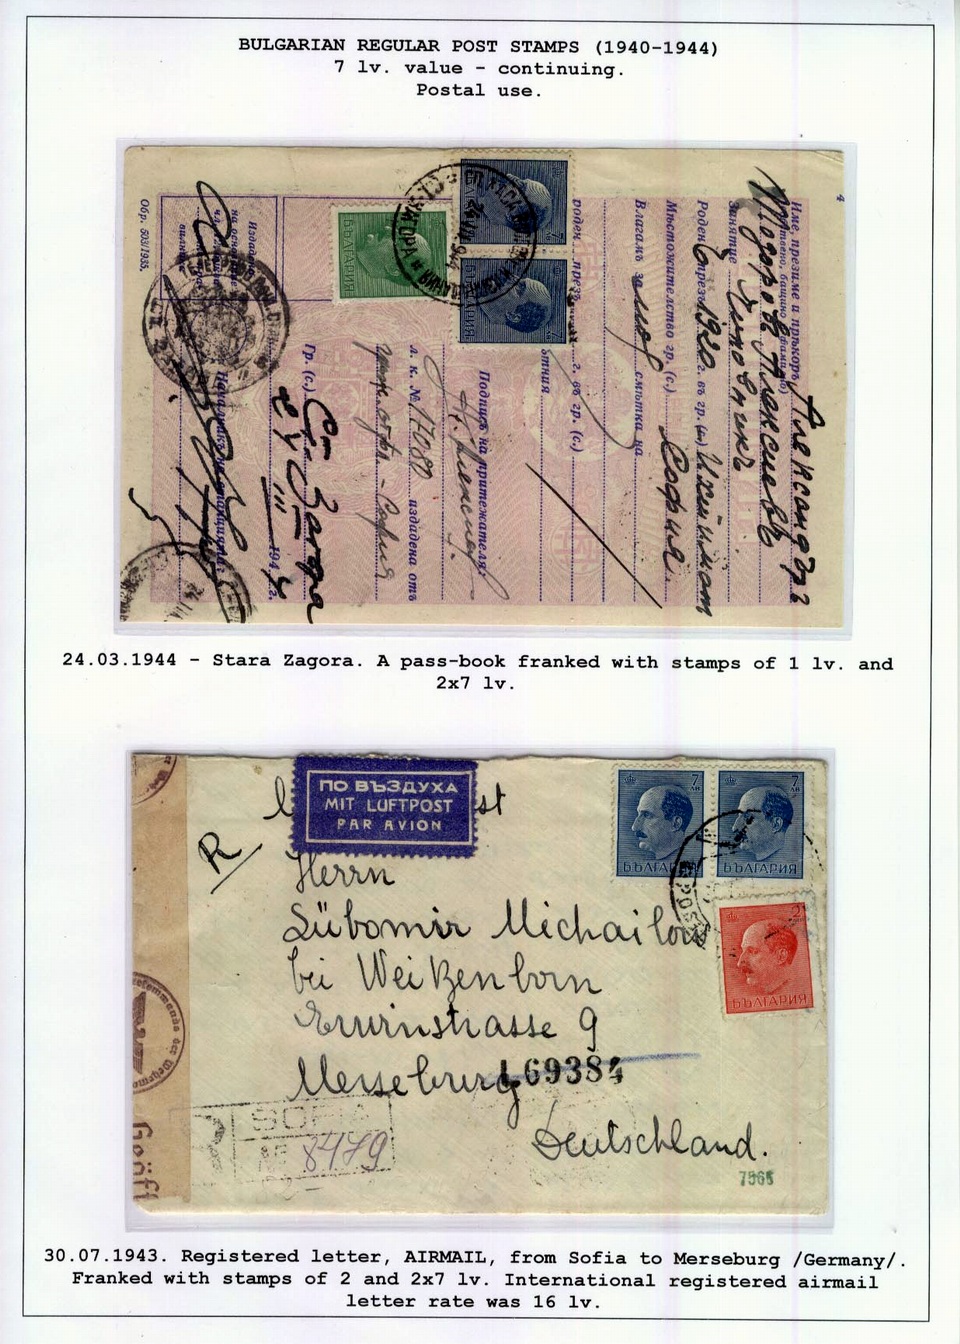 BULGARIAN REGULAR POST STAMPS (1940-1944)
7 lv. value - continuing.
Postal use.
4
Име, презиме и прѣкоръ
Александъръ
Тодоровъ Алексиевъ
Занятие Чиновникъ
Роденъ 6 презъ 1920 г. въ гр. (с.) Ихтиманъ
Мѣстожителство гр. (с.) София.
Влагамъ за моя смѣтка на
роден презъ г. въ гр. (с.)
Подписъ на притежателя:
л. к. № 17080 издадена отъ
София
Гр. (с.) Ст. Загора
194 4 г.
Обр. 503/1935.
БЪЛГАРИЯ
7
БЪЛГАРИЯ
7
БЪЛГАРИЯ
24.03.1944 - Stara Zagora. A pass-book franked with stamps of 1 lv. and
2x7 lv.
ПО ВЪЗДУХА
MIT LUFTPOST
PAR AVION
st
R
7 ЛВ
БЪЛГАРИЯ
7 ЛВ
БЪЛГАРИЯ
2
БЪЛГАРИЯ
Herrn
Lübomir Michailow
bei Weitzenborn
Erwinstrasse 9
Merseburg
169384
Deutschland.
R SOFIA
№ 8479
7965
Geöff
30.07.1943. Registered letter, AIRMAIL, from Sofia to Merseburg /Germany/.
Franked with stamps of 2 and 2x7 lv. International registered airmail
letter rate was 16 lv.